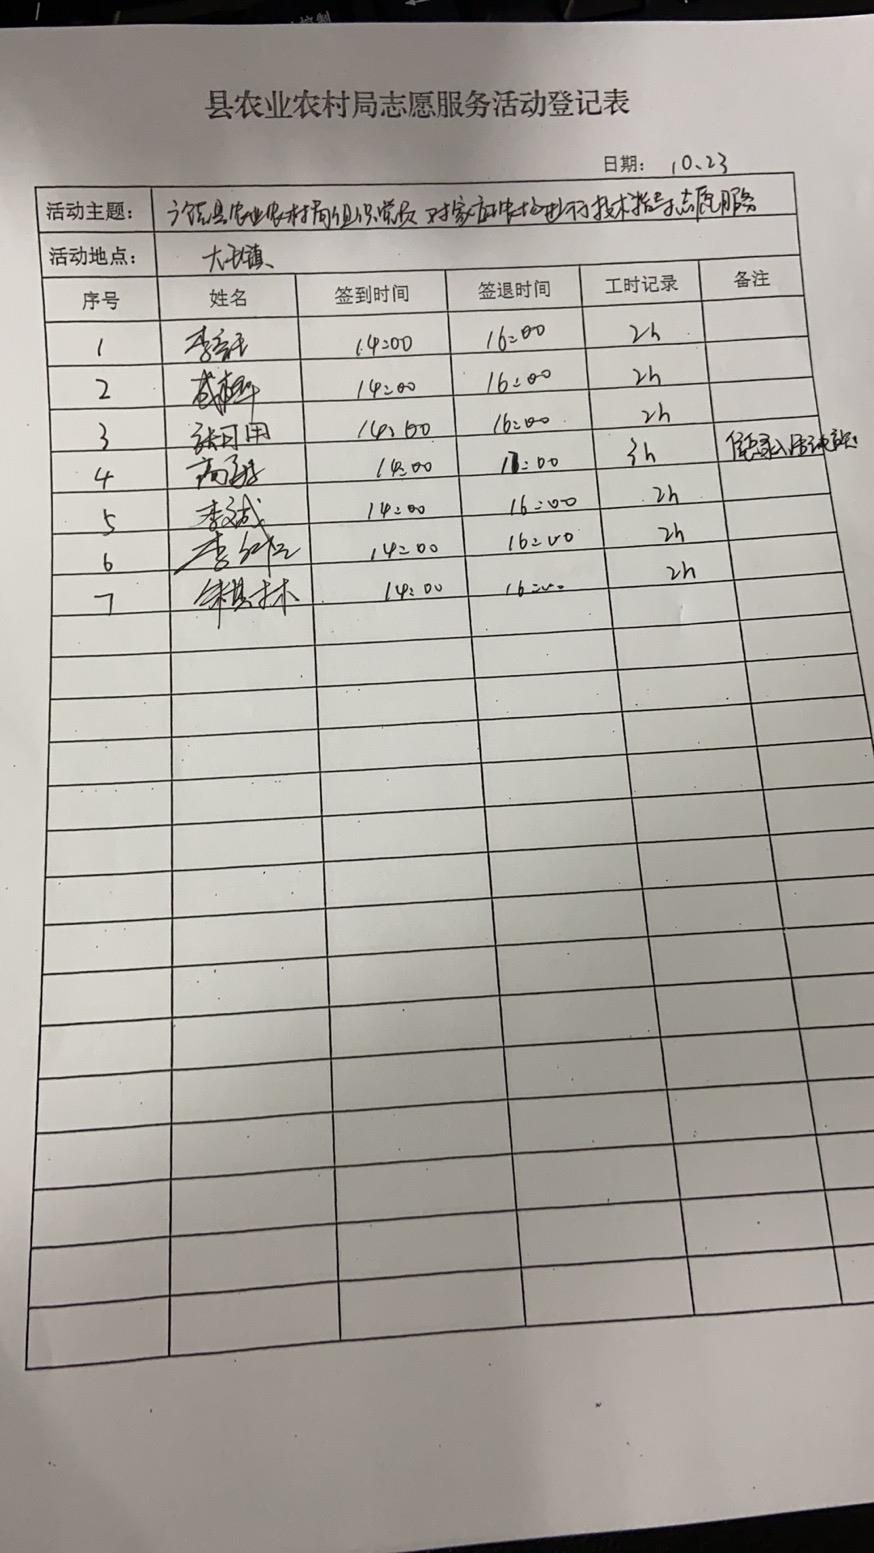 县农业农村局志愿服务活动登记表
日期： 10、23
活动主题： 县农业农村局组织党员对家庭农场进行技术指导志愿服务
活动地点： 大 镇
序号 姓名 签到时间 签退时间 工时记录 备注
1 李 14:00 16:00 2h
2 14:00 16:00 2h
3 张可用 14:00 16:00 2h
4 高 14:00 17:00 3h 信息录入
5 李文斌 14:00 16:00 2h
6 李 14:00 16:00 2h
7 林 14:00 16:00 2h